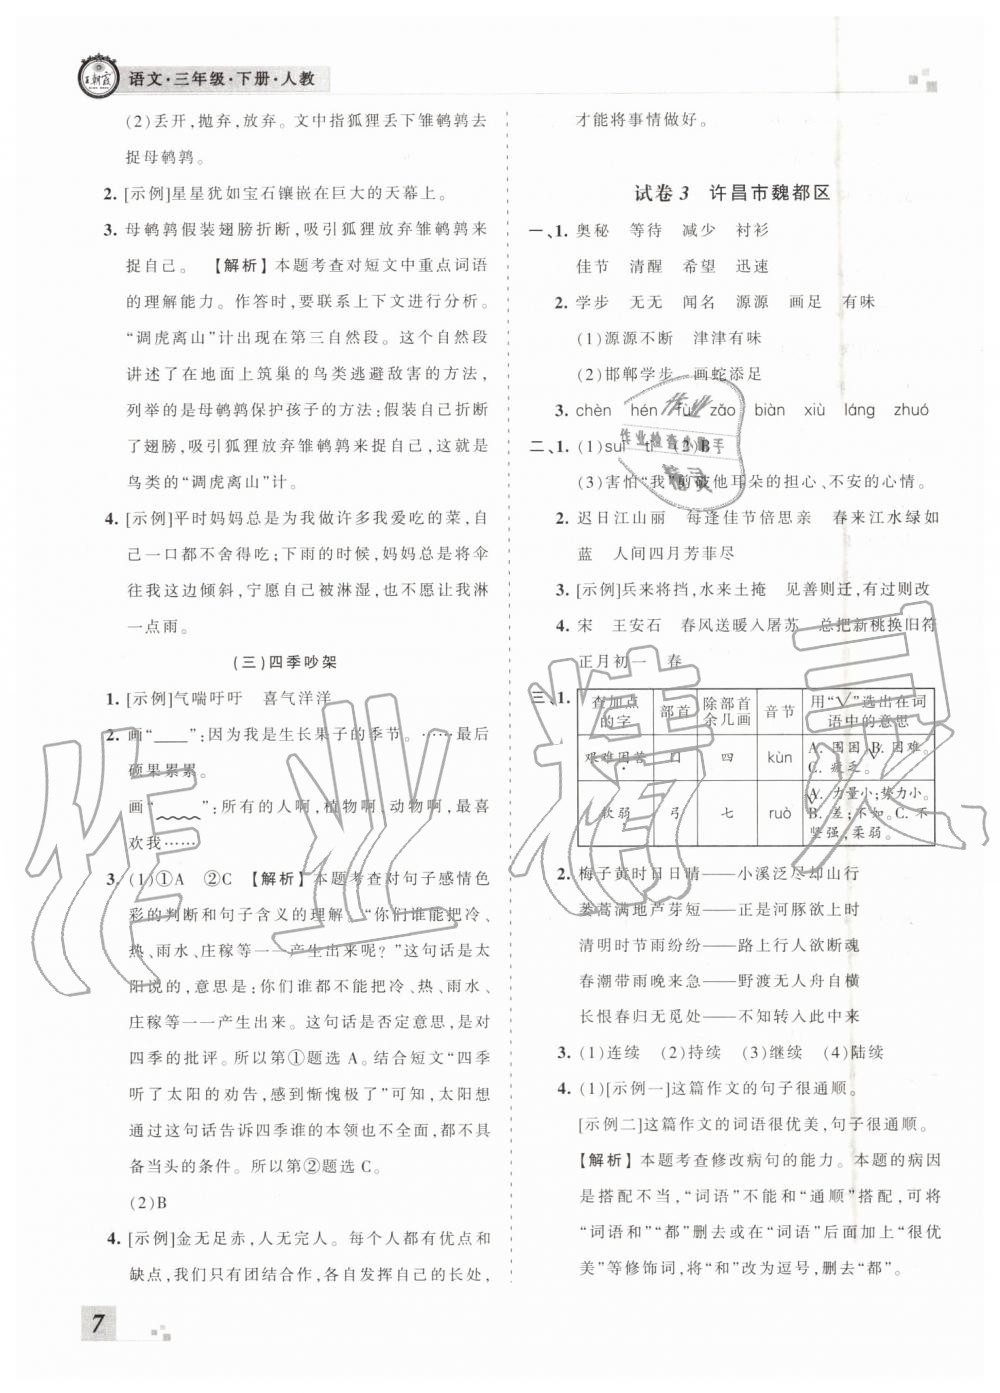 王朝霞
语文·三年级·下册·人教
(2)丢开,抛弃,放弃。文中指狐狸丢下雏鹌鹑去
捉母鹌鹑。
2. [示例]星星犹如宝石镶嵌在巨大的天幕上。
3. 母鹌鹑假装翅膀折断,吸引狐狸放弃雏鹌鹑来
捉自己。 【解析】本题考查对短文中重点词语
的理解能力。作答时,要联系上下文进行分析。
“调虎离山”计出现在第三自然段。这个自然段
讲述了在地面上筑巢的鸟类逃避敌害的方法,
列举的是母鹌鹑保护孩子的方法:假装自己折断
了翅膀,吸引狐狸放弃雏鹌鹑来捉自己,这就是
鸟类的“调虎离山”计。
4. [示例]平时妈妈总是为我做许多我爱吃的菜,自
己一口都不舍得吃;下雨的时候,妈妈总是将伞
往我这边倾斜,宁愿自己被淋湿,也不愿让我淋
一点雨。
(三)四季吵架
1. [示例]气喘吁吁 喜气洋洋
2. 画“____”:因为我是生长果子的季节。……最后
硕果累累。
画“﹏﹏”:所有的人啊,植物啊,动物啊,最喜
欢我……
3. (1)①A ②C 【解析】本题考查对句子感情色
彩的判断和句子含义的理解。“你们谁能把冷、
热、雨水、庄稼等一一产生出来呢?”这句话是太
阳说的,意思是:你们谁都不能把冷、热、雨水、
庄稼等一一产生出来。这句话是否定意思,是对
四季的批评。所以第①题选A。结合短文“四季
听了太阳的劝告,感到惭愧极了”可知,太阳想
通过这句话告诉四季谁的本领也不全面,都不具
备当头的条件。所以第②题选C。
(2)B
4. [示例]金无足赤,人无完人。每个人都有优点和
缺点,我们只有团结合作,各自发挥自己的长处,
才能将事情做好。
试卷3 许昌市魏都区
一、1. 奥秘 等待 减少 衬衫
佳节 清醒 希望 迅速
2. 学步 无无 闻名 源源 画足 有味
(1)源源不断 津津有味
(2)邯郸学步 画蛇添足
3. chèn hén fù zǎo biàn xiù láng zhuó
二、1. (1)suì tì (2)B
(3)害怕“我”剪破他耳朵的担心、不安的心情。
2. 迟日江山丽 每逢佳节倍思亲 春来江水绿如
蓝 人间四月芳菲尽
3. [示例]兵来将挡,水来土掩 见善则迁,有过则改
4. 宋 王安石 春风送暖入屠苏 总把新桃换旧符
正月初一 春
三、1.
查加点的字 部首 除部首余几画 音节 用“√”选出在词语中的意思
艰难困苦 囗 四 kùn A. 围困 B. 困难。 C. 疲乏。
软弱 弓 七 ruò A. 力量小;势力小。 B. 差;不如。 C. 不坚强,柔弱。
2. 梅子黄时日日晴——小溪泛尽却山行
蒌蒿满地芦芽短——正是河豚欲上时
清明时节雨纷纷——路上行人欲断魂
春潮带雨晚来急——野渡无人舟自横
长恨春归无觅处——不知转入此中来
3. (1)连续 (2)持续 (3)继续 (4)陆续
4. (1)[示例一]这篇作文的句子很通顺。
[示例二]这篇作文的词语很优美,句子很通顺。
【解析】本题考查修改病句的能力。本题的病因
是搭配不当,“词语”不能和“通顺”搭配,可将
“词语和”“都”删去或在“词语”后面加上“很优
美”等修饰词,将“和”改为逗号,删去“都”。
7
作业精灵
作业
作业检查小助手
精灵